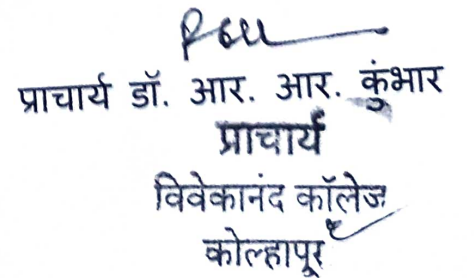 प्राचार्य डॉ. आर. आर. कुंभार
प्राचार्य
विवेकानंद कॉलेज
कोल्हापूर